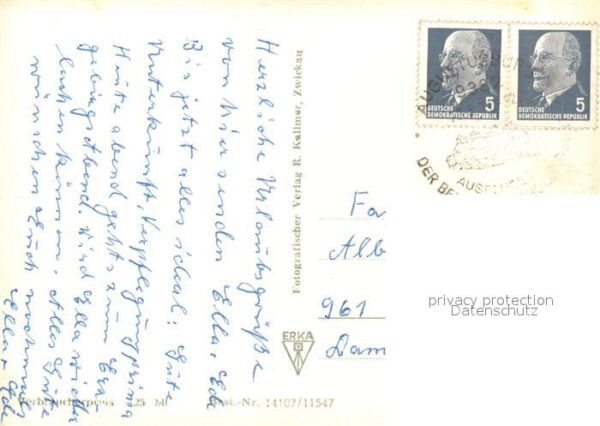 Herzliche Urlaubsgrüße
von hier senden Ella, Ede
Bis jetzt alles ideal: Gute
Unterkunft, Verpflegung prima
Heute abend geht's zum Erz-
gebirgsabend. Wird Ella wieder
lachen können. Alles Gute
wünschen Euch nochmals
Ella + Ede
Fotografischer Verlag R. Kallmer, Zwickau
DEUTSCHE
DEMOKRATISCHE REPUBLIK
5
DEUTSCHE
DEMOKRATISCHE REPUBLIK
5
AUGUSTUSBURG
DER BE
Fa
Alb
961
Dam
privacy protection
Datenschutz
ERKA
Verbraucherpreis -,25 M
Best.-Nr. 14107/11547